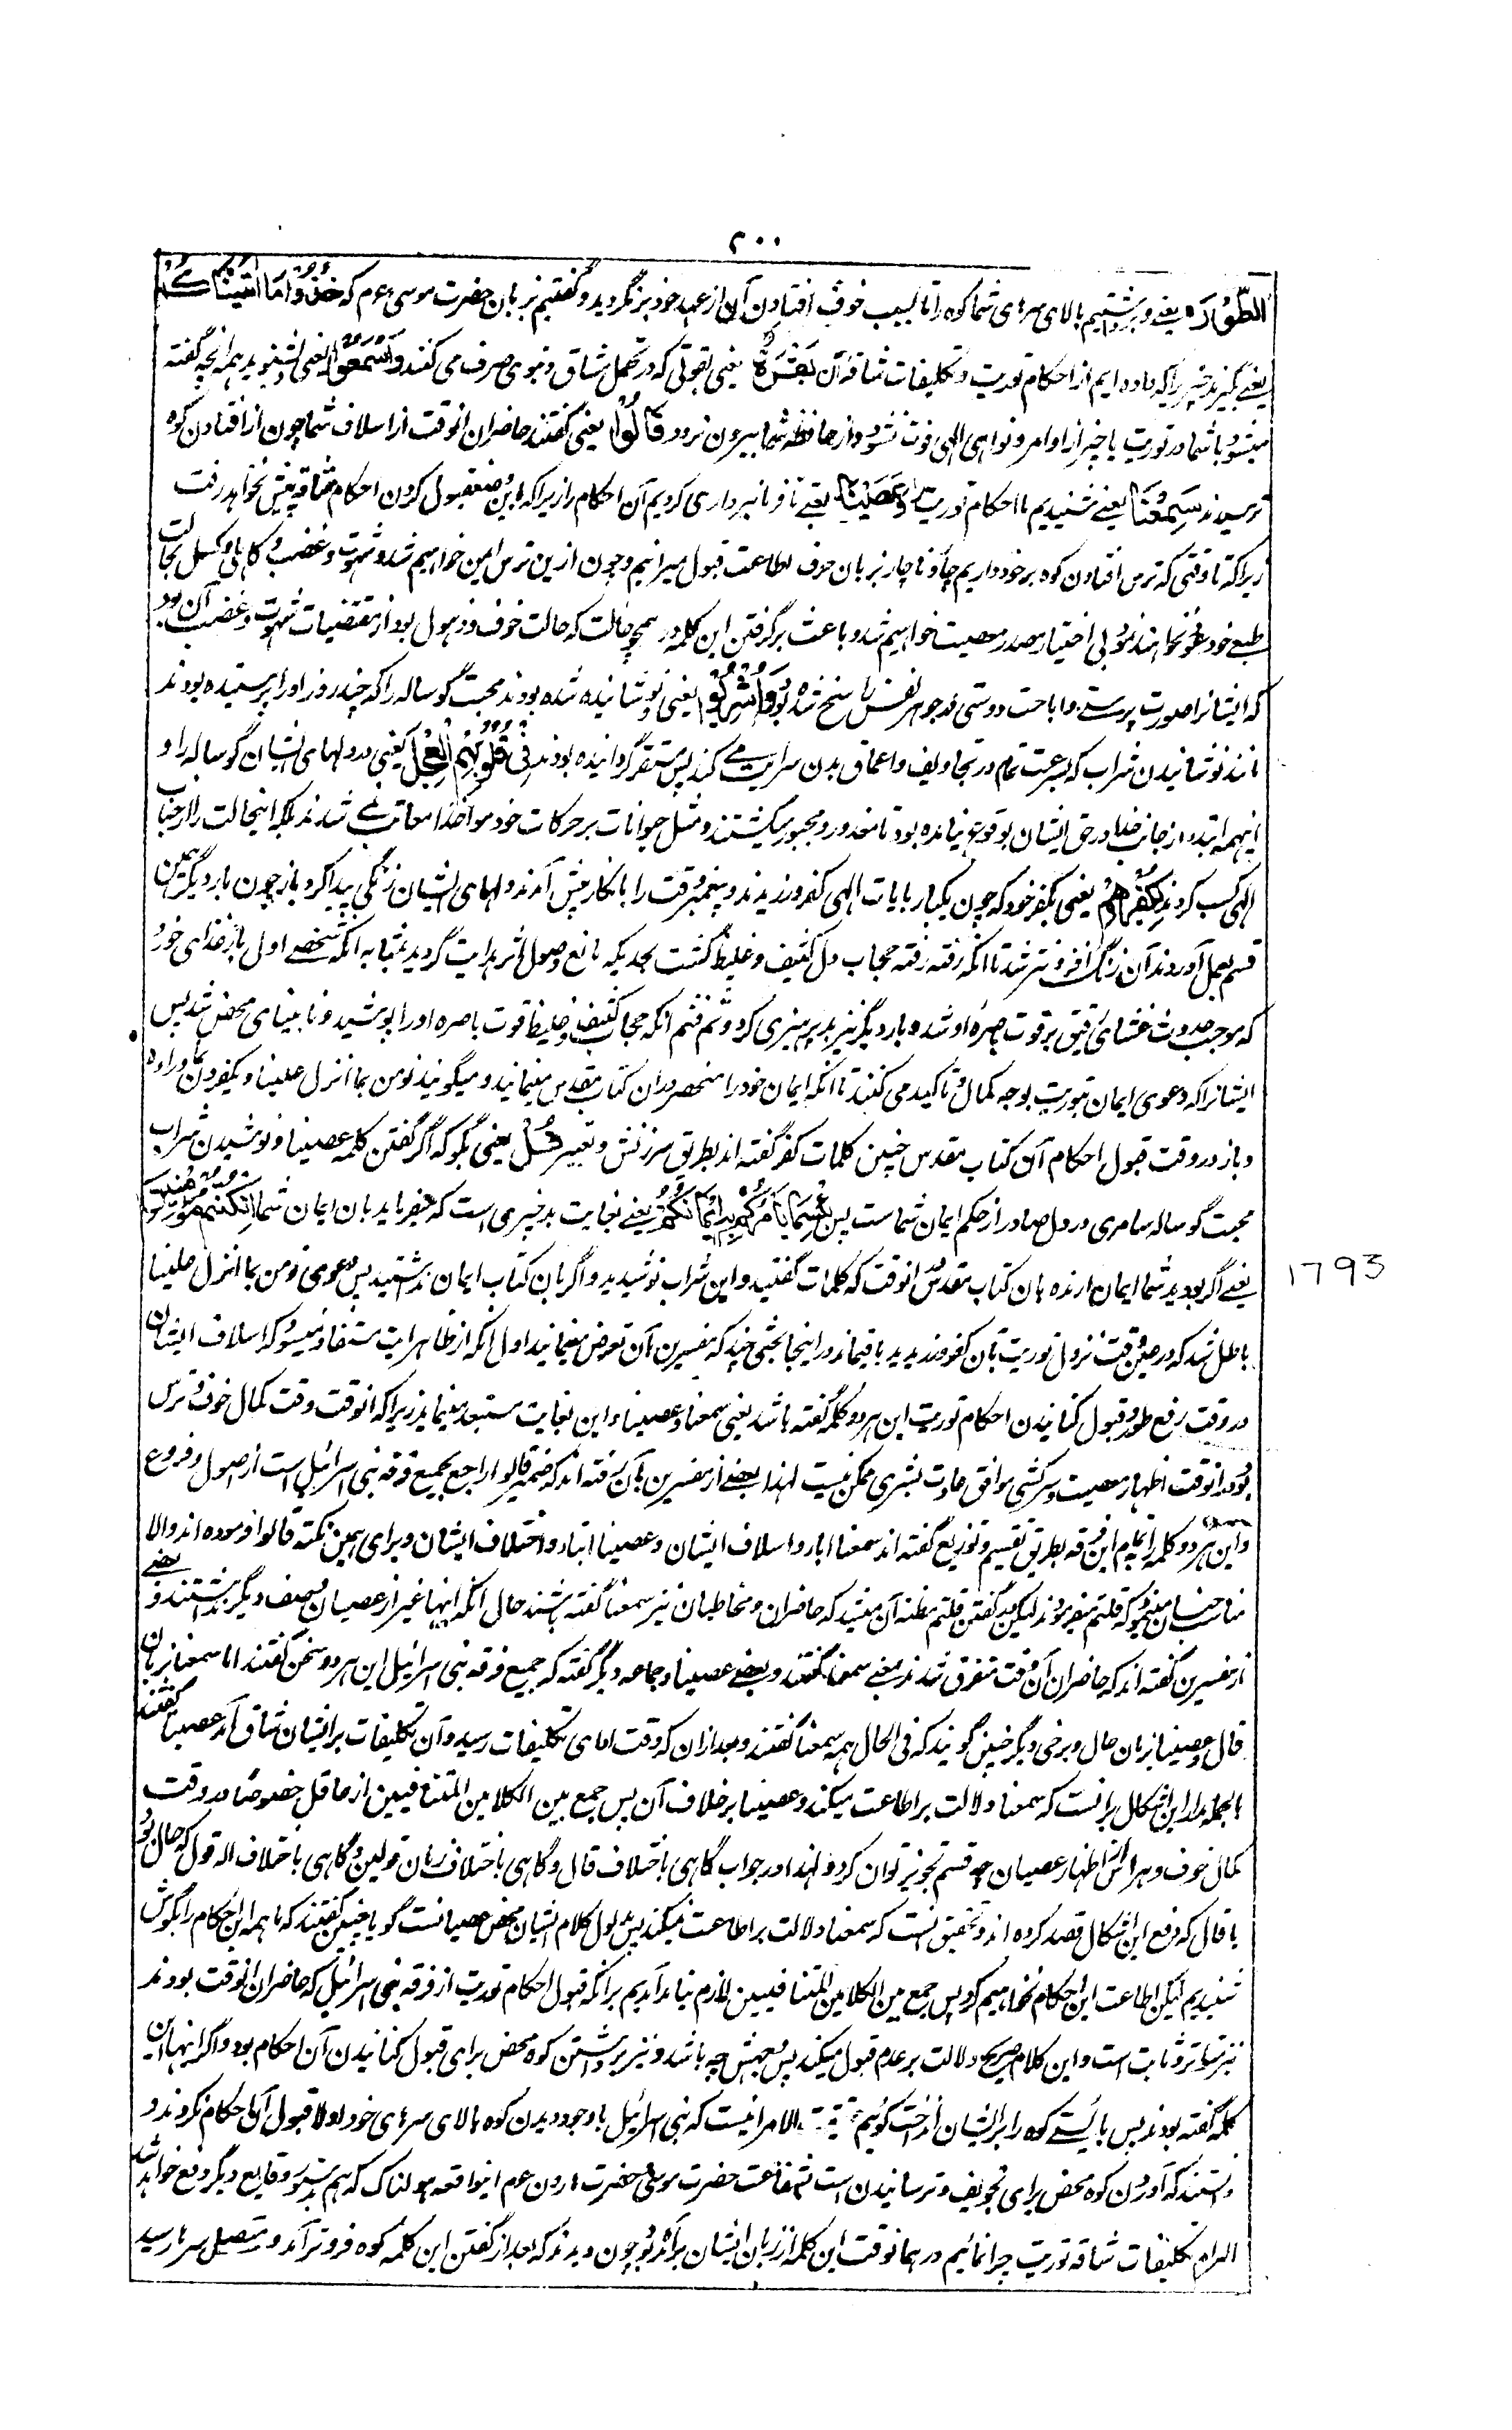 ۲۰۰
الطُّوْرَ یعنی و برداشتیم بالای سرهای شما کوه را تا بسبب خوف افتادن آن از عهد خود برنگردید و گفتیم بزبان حضرت موسی عم که خُذُوْا مَا اٰتَیْنٰكُمْ
یعنی بگیرید چیزیرا که داده ایم از احکام توریت و تکلیفات شاقه آن بِقُوَّةٍ یعنی بقوتی که در تحمل مشاق دنیوی صرف می کنند وَاسْمَعُوْا یعنی بشنوید همه آنچه گفته
میشود با شما در توریت تا چیزی از اوامر و نواهی الهی فوت نشود و از حافظه شما بیرون نرود قَالُوْا یعنی گفتند حاضران انوقت از اسلاف شما چون از افتادن کوه
ترسیدند سَمِعْنَا یعنی شنیدیم ما احکام توریت را وَعَصَیْنَا یعنی نافرمانبرداری کردیم آن احکام را زیرا که این وضع قبول کردن احکام شاقه پیش نخواهد رفت
زیرا که تا وقتی که ترس افتادن کوه بر خود داریم چار و ناچار بزبان حرف اطاعت قبول میرانیم و چون ازین ترس امین خواهیم شد و شهوت و غضب و کاهلی و کسل بحالت
طبع خود عود خواهند نمود بی اختیار مصدر معصیت خواهیم شد و باعث بر گرفتن این کلمه در همچو حالت که حالت خوف و ذهول بود از مقتضیات شهوت و غضب آن بود
که ایشانرا صورت پرستی و اباحت دوستی در جوهر نفس راسخ شده بود وَاُشْرِبُوْا یعنی نوشانیده شده بودند محبت گوساله را که چند روز او را پرستیده بودند
مانند نوشانیدن شراب که بسرعت تمام در تجاویف و اعماق بدن سرایت می کند پس مستقر گردانیده بودند فِیْ قُلُوْبِهِمُ الْعِجْلَ یعنی در دلهای ایشان گوساله را و
اینهمه ابتداءً از جانب خدا در حق ایشان بوقوع نیامده بود تا معذور و مجبور میگشتند و مثل حیوانات بر حرکات خود مواخذ و معاتب نمی شدند بلکه اینحالت را از جناب
الهی کسب کردند بِكُفْرِهِمْ یعنی بکفر خود که چون یکبار بایات الهی کفر ورزیدند و پیغمبر وقت را بانکار پیش آمدند دلهای ایشان زنگی پیدا کرد و باز چون بار دیگر همین
قسم بعمل آوردند آن زنگ افزونتر شد تا آنکه رفته رفته حجاب دل کثیف و غلیظ گشت بحدیکه مانع وصول اثر هدایت گردید بمثابه آنکه شخصی اول بار غذای خورد
که موجب حدوث غشای رقیق بر قوت باصره او شد و بار دیگر نیز بدپرهیزی کرد و ثم و ثم آنکه حجاب کثیف و غلیظ قوت باصره او را پوشید و نابینای محض شد پس
ایشانرا که دعوی ایمان بتوریت بوجه کمال و تاکید می کنند تا آنکه ایمان خود را منحصر دران کتاب مقدس مینمایند و میگویند نومن بما انزل علینا و یکفرون بما وراءه
و باز در وقت قبول احکام آن کتاب مقدس چنین کلمات کفر گفته اند بطریق سرزنش و تعییر قُلْ یعنی بگو که اگر گفتن کلمه عصینا و نوشیدن شراب
محبت گوساله سامری در دل صادر از حکم ایمان شماست پس بِئْسَمَا یَاْمُرُكُمْ بِهٖٓ اِیْمَانُكُمْ یعنی نهایت بد چیزی است که میفرماید بان ایمان شما اِنْ كُنْتُمْ مُّؤْمِنِیْنَ
یعنی اگر بودید شما ایمان ارنده بان کتاب مقدس انوقت که کلمات گفتید و این شراب نوشیدید و اگر بان کتاب ایمان نداشتید پس دعوی نومن بما انزل علینا
1793
باطل شد که در عین وقت نزول توریت بآن کفر ورزیدید باقیماند در اینجا بحثی چند که مفسرین بآن تعرض مینمایند اول آنکه از ظاهر ایت مستفاد میشود که اسلاف ایشان
در وقت رفع طور و قبول کنانیدن احکام توریت این هر دو کلمه گفته باشند یعنی سمعنا و عصینا و این بغایت مستبعد مینماید زیرا که انوقت وقت کمال خوف و ترس
بود و در انوقت اظهار معصیت و سرکشی موافق عادت بشری ممکن نیست لهذا بعضی از مفسرین بآن رفته اند که ضمیر قالوا راجع بجمیع فرقه بنی اسرائیل است از اصول و فروع
و این هر دو کلمه را تمام این فرقه بطریق تقسیم و توزیع گفته اند سمعنا اباء و اسلاف ایشان و عصینا ابناء و اخلاف ایشان و برای همین نکته قالوا فرموده اند و الا
مناسب چنان مینمود که قلتم میفرمودند لیکن در گفتن قلتم مظنه آن میشد که حاضران و مخاطبان نیز سمعنا گفته باشند حال آنکه اینها غیر از عصیان وصف دیگر نداشتند و بعضی
از مفسرین گفته اند که حاضران آن وقت متفرق شدند بعضی سمعنا گفتند و بعضی عصینا و جماعه دیگر گفته که جمیع فرقه بنی اسرائیل این هر دو سخن گفتند اما سمعنا بزبان
قال و عصینا بزبان حال و برخی دیگر چنین گویند که فی الحال همه سمعنا گفتند و بعد ازان که وقت ادای تکلیفات رسید و آن تکلیفات بر ایشان شاق آمد عصینا گفتند
بالجمله مدار این اشکال برانست که سمعنا دلالت بر اطاعت میکند و عصینا بر خلاف آن پس جمع بین الکلامین المتنافیین از عاقل خصوصًا در وقت
کمال خوف و هراس از اظهار عصیان چه قسم تجویز توان کرد و لهذا در جواب گاهی باختلاف قال و گاهی باختلاف زمان قولین و گاهی باختلاف اله قول که حال بود
یا قال که دفع این اشکال قصد کرده اند و تحقیق انست که سمعنا دلالت بر اطاعت نمیکند پس مدلول کلام ایشان محض عصیانست گویا چنین گفتند که ما همه این احکام را بگوش
شنیدیم لیکن اطاعت این احکام نخواهیم کرد پس جمع بین الکلامین المتنافیین لازم نیامد آمدیم برانکه قبول احکام توریت از فرقه بنی اسرائیل که حاضران انوقت بودند
نیز بتواتر ثابت است و این کلام صریح دلالت بر عدم قبول میکند پس وجهش چه باشد و نیز برداشتن کوه محض برای قبول کنانیدن آن احکام بود و اگر اینها این
کلمه گفته بودند پس بایستی کوه را بر ایشان انداخت گوئیم حقیقت الامر اینست که بنی اسرائیل با وجود دیدن کوه بالای سرهای خود اولا قبول آن احکام نکردند و
دانستند که آوردن کوه محض برای تخویف و ترسانیدن است بشفاعت حضرت موسی و حضرت هارون عم اینواقعه هولناک که هم بدستور وقایع دیگر دفع خواهد شد
التزام تکلیفات شاقه توریت چرا نمائیم در همانوقت این کلمه از زبان ایشان برآمده بود چون دیدند که بعد از گفتن این کلمه کوه فروتر آمد و متصل سرها رسید